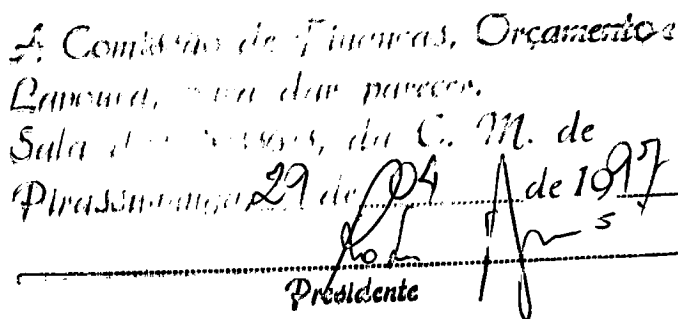 À Comissão de Finanças, Orçamento e
Lavoura, para dar parecer.
Sala das Sessões, da C. M. de
Pirassununga, 29 de 04 de 1997
Presidente